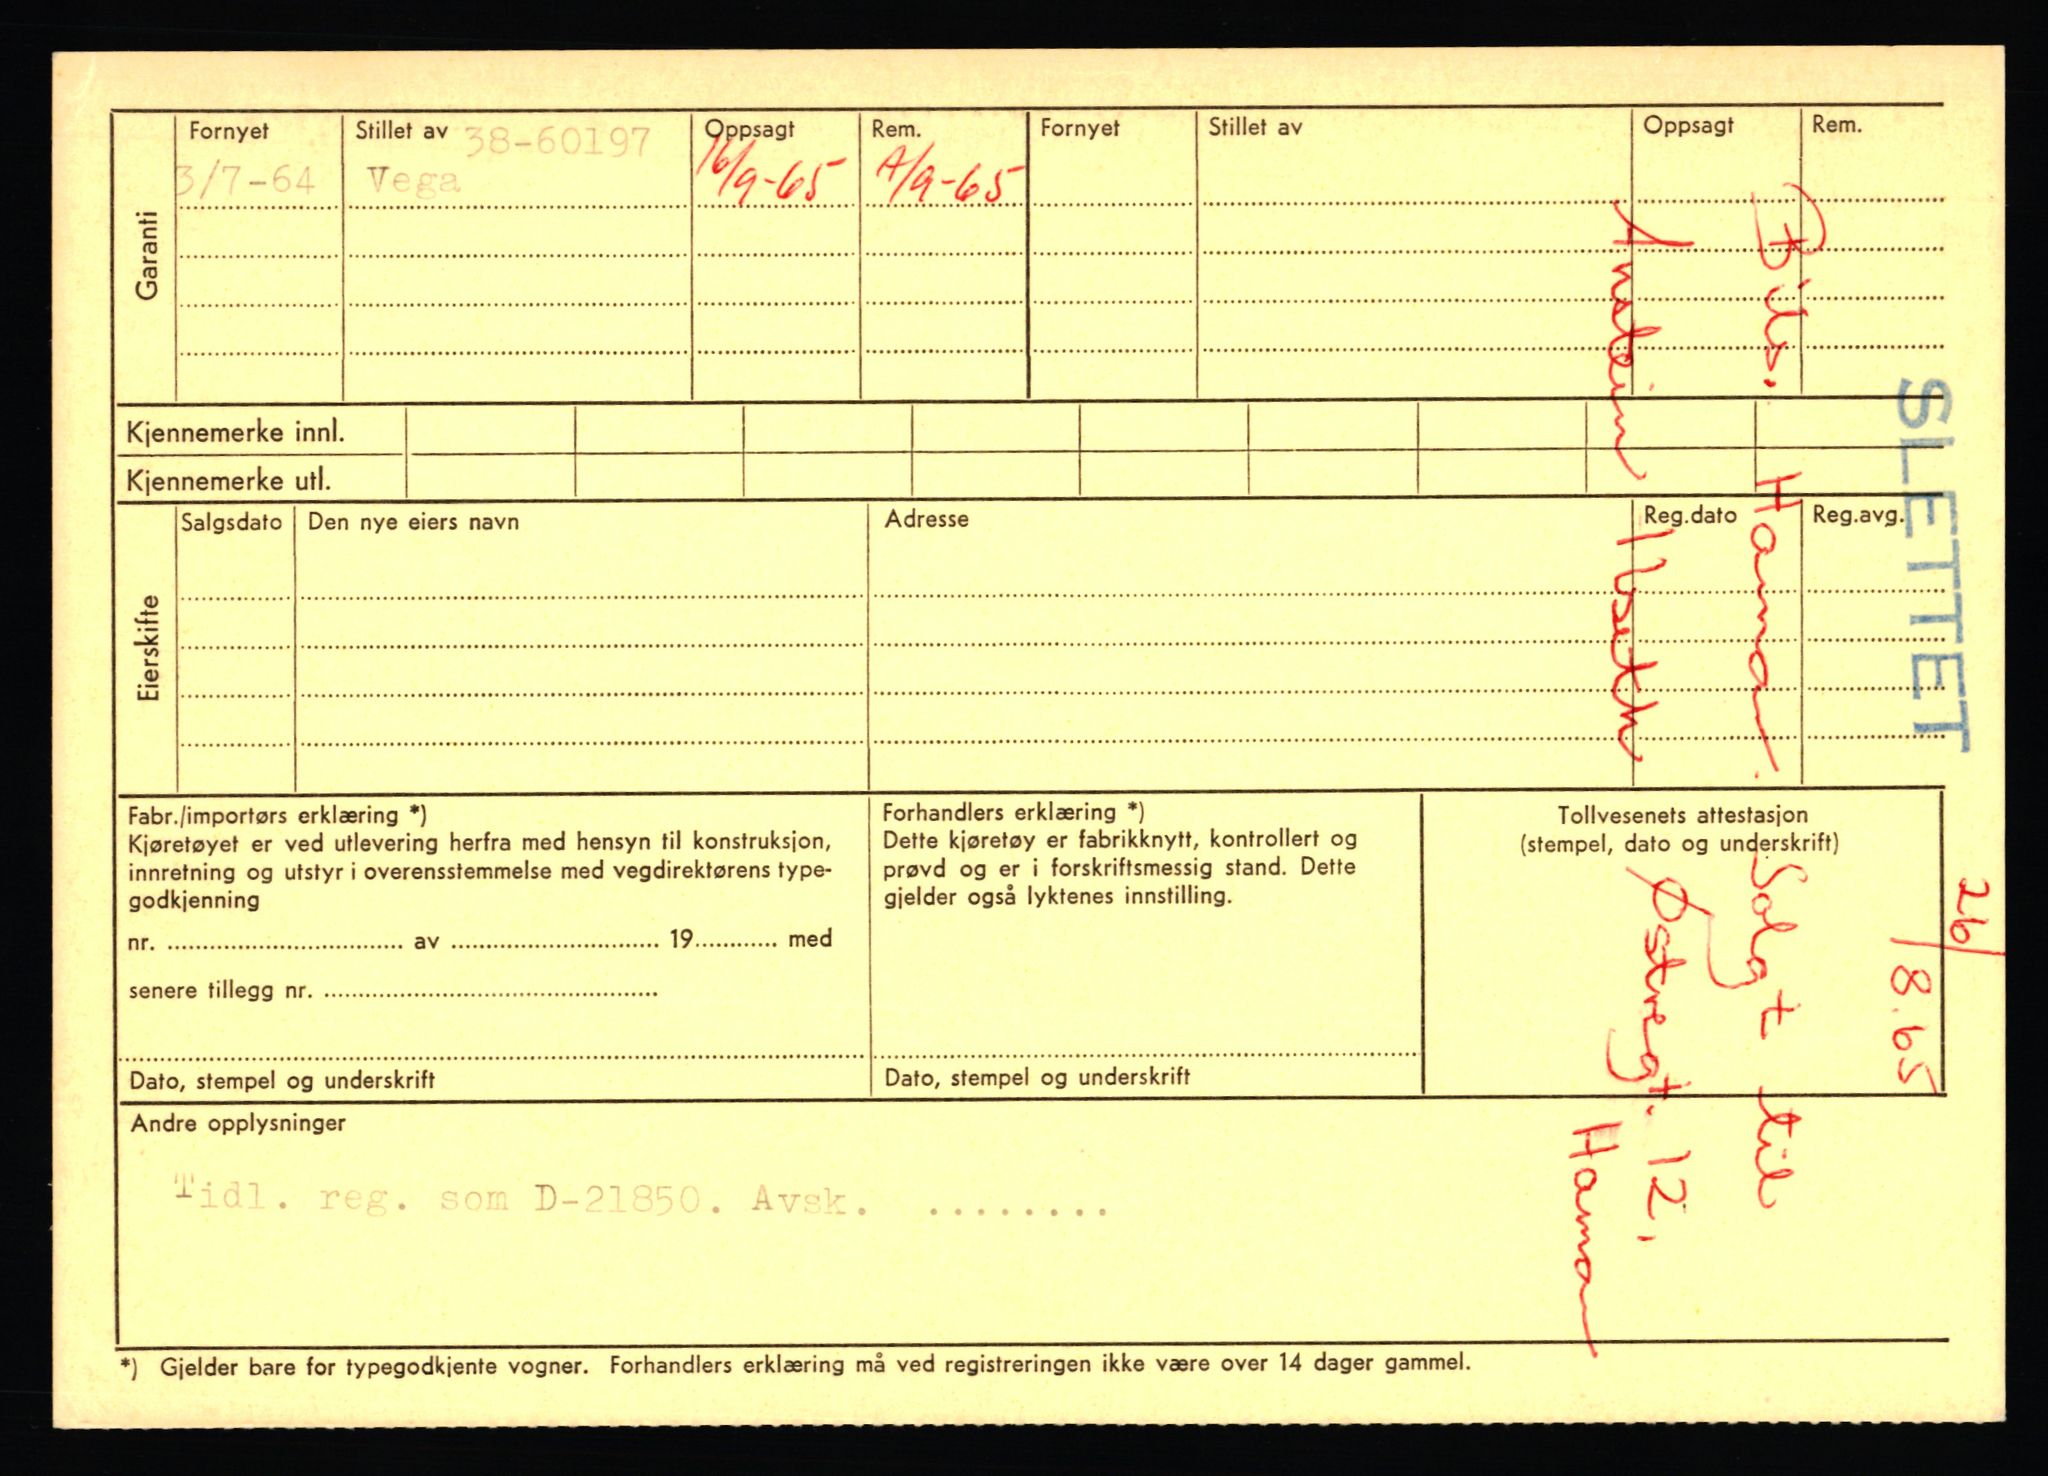 Garanti
Fornyet Stillet av 38-60197 Oppsagt Rem. Fornyet Stillet av Oppsagt Rem.
3/7-64 Vega 16/9-65 A/9-65
Kjennemerke innl.
Kjennemerke utl.
Eierskifte
Salgsdato Den nye eiers navn Adresse Reg.dato Reg.avg.
Fabr./importørs erklæring *)
Kjøretøyet er ved utlevering herfra med hensyn til konstruksjon,
innretning og utstyr i overensstemmelse med vegdirektørens type-
godkjenning
nr. .................................. av .............................. 19............ med
senere tillegg nr. ................................................
Dato, stempel og underskrift
Forhandlers erklæring *)
Dette kjøretøy er fabrikknytt, kontrollert og
prøvd og er i forskriftsmessig stand. Dette
gjelder også lyktenes innstilling.
Dato, stempel og underskrift
Tollvesenets attestasjon
(stempel, dato og underskrift)
Andre opplysninger
Tidl. reg. som D-21850. Avsk. ........
*) Gjelder bare for typegodkjente vogner. Forhandlers erklæring må ved registreringen ikke være over 14 dager gammel.
SLETTET
26/8.65
Bils. Hamar. Solgt til
Anstein Ilseth Østregt. 12,
Hamar